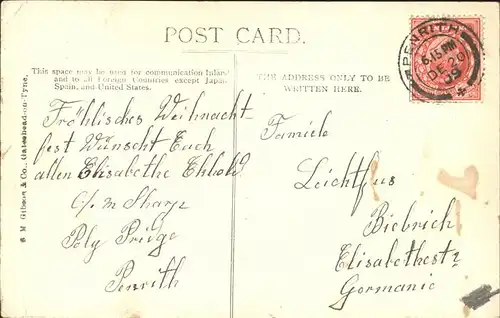 POST CARD.
PENRITH
6.15 PM
DE 20
09
This space may be used for communication Inland
and to all Foreign Countries except Japan,
Spain, and United States.
THE ADDRESS ONLY TO BE
WRITTEN HERE.
Fröhlisches Weihnacht
fest Wünscht Euch
allen Elisabethe
c/o m Sharp
Poly Pridge
Penrith
S M Gibson & Co., Gateshead-on-Tyne.
Famiele
Leichtfus
Biebrich
Elisabethestr
Germanie